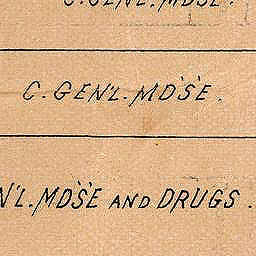 C. GEN'L. MDSE.
C. GEN'L. MD'S'E.
N'L. MD'S'E AND DRUGS.